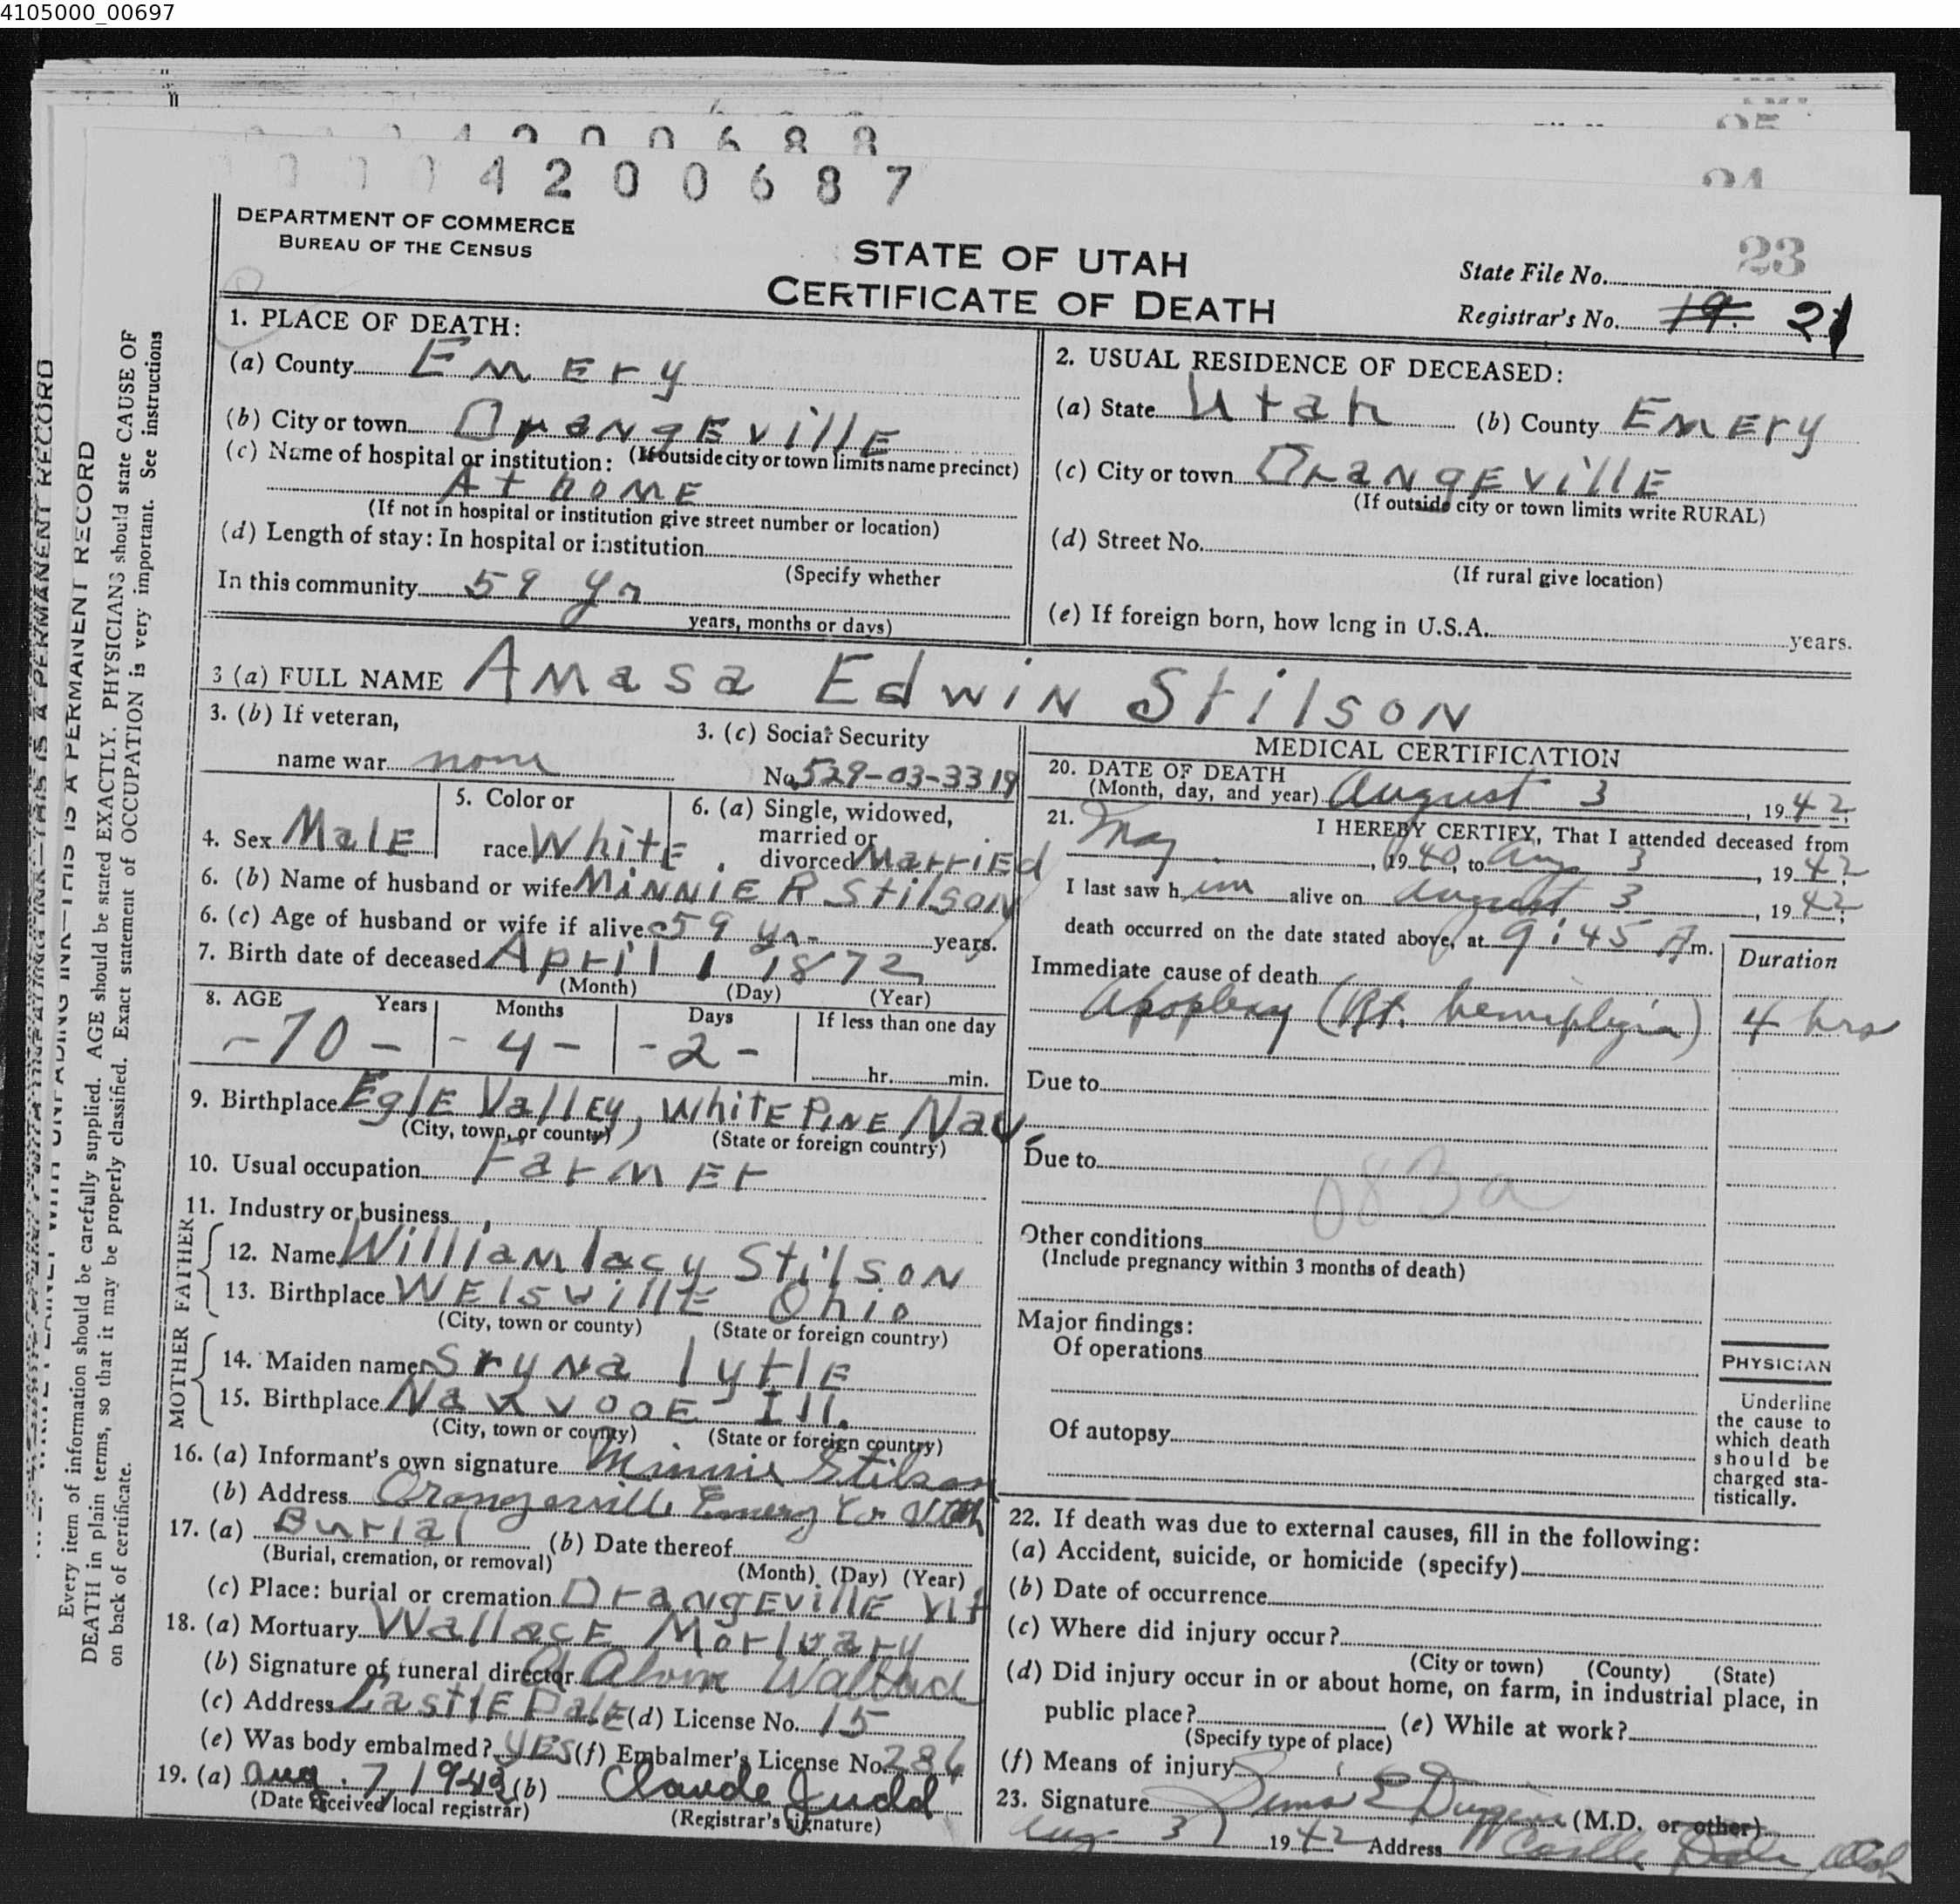 4105000_00697
4200688
4200687
DEPARTMENT OF COMMERCE
BUREAU OF THE CENSUS
STATE OF UTAH
CERTIFICATE OF DEATH
25
24
23
State File No.
Registrar's No. 19. 21
WRITE PLAINLY WITH UNFADING INK—THIS IS A PERMANENT RECORD
Every item of information should be carefully supplied. AGE should be stated EXACTLY. PHYSICIANS should state CAUSE OF
DEATH in plain terms, so that it may be properly classified. Exact statement of OCCUPATION is very important. See instructions
on back of certificate.
1. PLACE OF DEATH:
(a) County Emery
(b) City or town Orangeville
(If outside city or town limits name precinct)
(c) Name of hospital or institution:
At home
(If not in hospital or institution give street number or location)
(d) Length of stay: In hospital or institution
(Specify whether
In this community 59 yr
years, months or days)
2. USUAL RESIDENCE OF DECEASED:
(a) State Utah (b) County Emery
(c) City or town Orangeville
(If outside city or town limits write RURAL)
(d) Street No.
(If rural give location)
(e) If foreign born, how long in U.S.A. years.
3 (a) FULL NAME Amasa Edwin Stilson
3. (b) If veteran,
name war none
3. (c) Social Security
No. 529-03-3319
4. Sex Male
5. Color or
race White
6. (a) Single, widowed,
married or
divorced Married
6. (b) Name of husband or wife Minnie R Stilson
6. (c) Age of husband or wife if alive 59 yr- years.
7. Birth date of deceased April 1 1872
(Month) (Day) (Year)
8. AGE Years Months Days If less than one day
-70- -4- -2- hr. min.
9. Birthplace Egle Valley, White Pine Nav.
(City, town, or county) (State or foreign country)
10. Usual occupation Farmer
11. Industry or business
FATHER
12. Name William lacy Stilson
13. Birthplace Welsville Ohio
(City, town or county) (State or foreign country)
MOTHER
14. Maiden name Sryna lytle
15. Birthplace Nauvooe Ill.
(City, town or county) (State or foreign country)
16. (a) Informant's own signature Minnie Stilson
(b) Address Orangeville Emery Co Utah
17. (a) Burial (b) Date thereof
(Burial, cremation, or removal) (Month) (Day) (Year)
(c) Place: burial or cremation Orangeville Ut
18. (a) Mortuary Wallace Mortuary
(b) Signature of funeral director Alvin
(c) Address Castle Dale (d) License No. 15
(e) Was body embalmed? yes (f) Embalmer's License No. 286
19. (a) Aug. 7, 1942 (b) Claude Judd
(Date received local registrar) (Registrar's signature)
MEDICAL CERTIFICATION
20. DATE OF DEATH
(Month, day, and year) August 3, 1942
21. I HEREBY CERTIFY, That I attended deceased from
May, 1940, to Aug 3, 1942
I last saw him alive on August 3, 1942;
death occurred on the date stated above, at 9:45 A m.
Duration
Immediate cause of death
Apoplexy (Rt. hemiplegia) 4 hrs
Due to
Due to
083a
Other conditions
(Include pregnancy within 3 months of death)
Major findings:
Of operations
Of autopsy
PHYSICIAN
Underline
the cause to
which death
should be
charged sta-
tistically.
22. If death was due to external causes, fill in the following:
(a) Accident, suicide, or homicide (specify)
(b) Date of occurrence
(c) Where did injury occur?
(City or town) (County) (State)
(d) Did injury occur in or about home, on farm, in industrial place, in
public place? (e) While at work?
(Specify type of place)
(f) Means of injury
23. Signature (M.D. or other)
Aug 3, 1942 Address Castle Dale, Utah